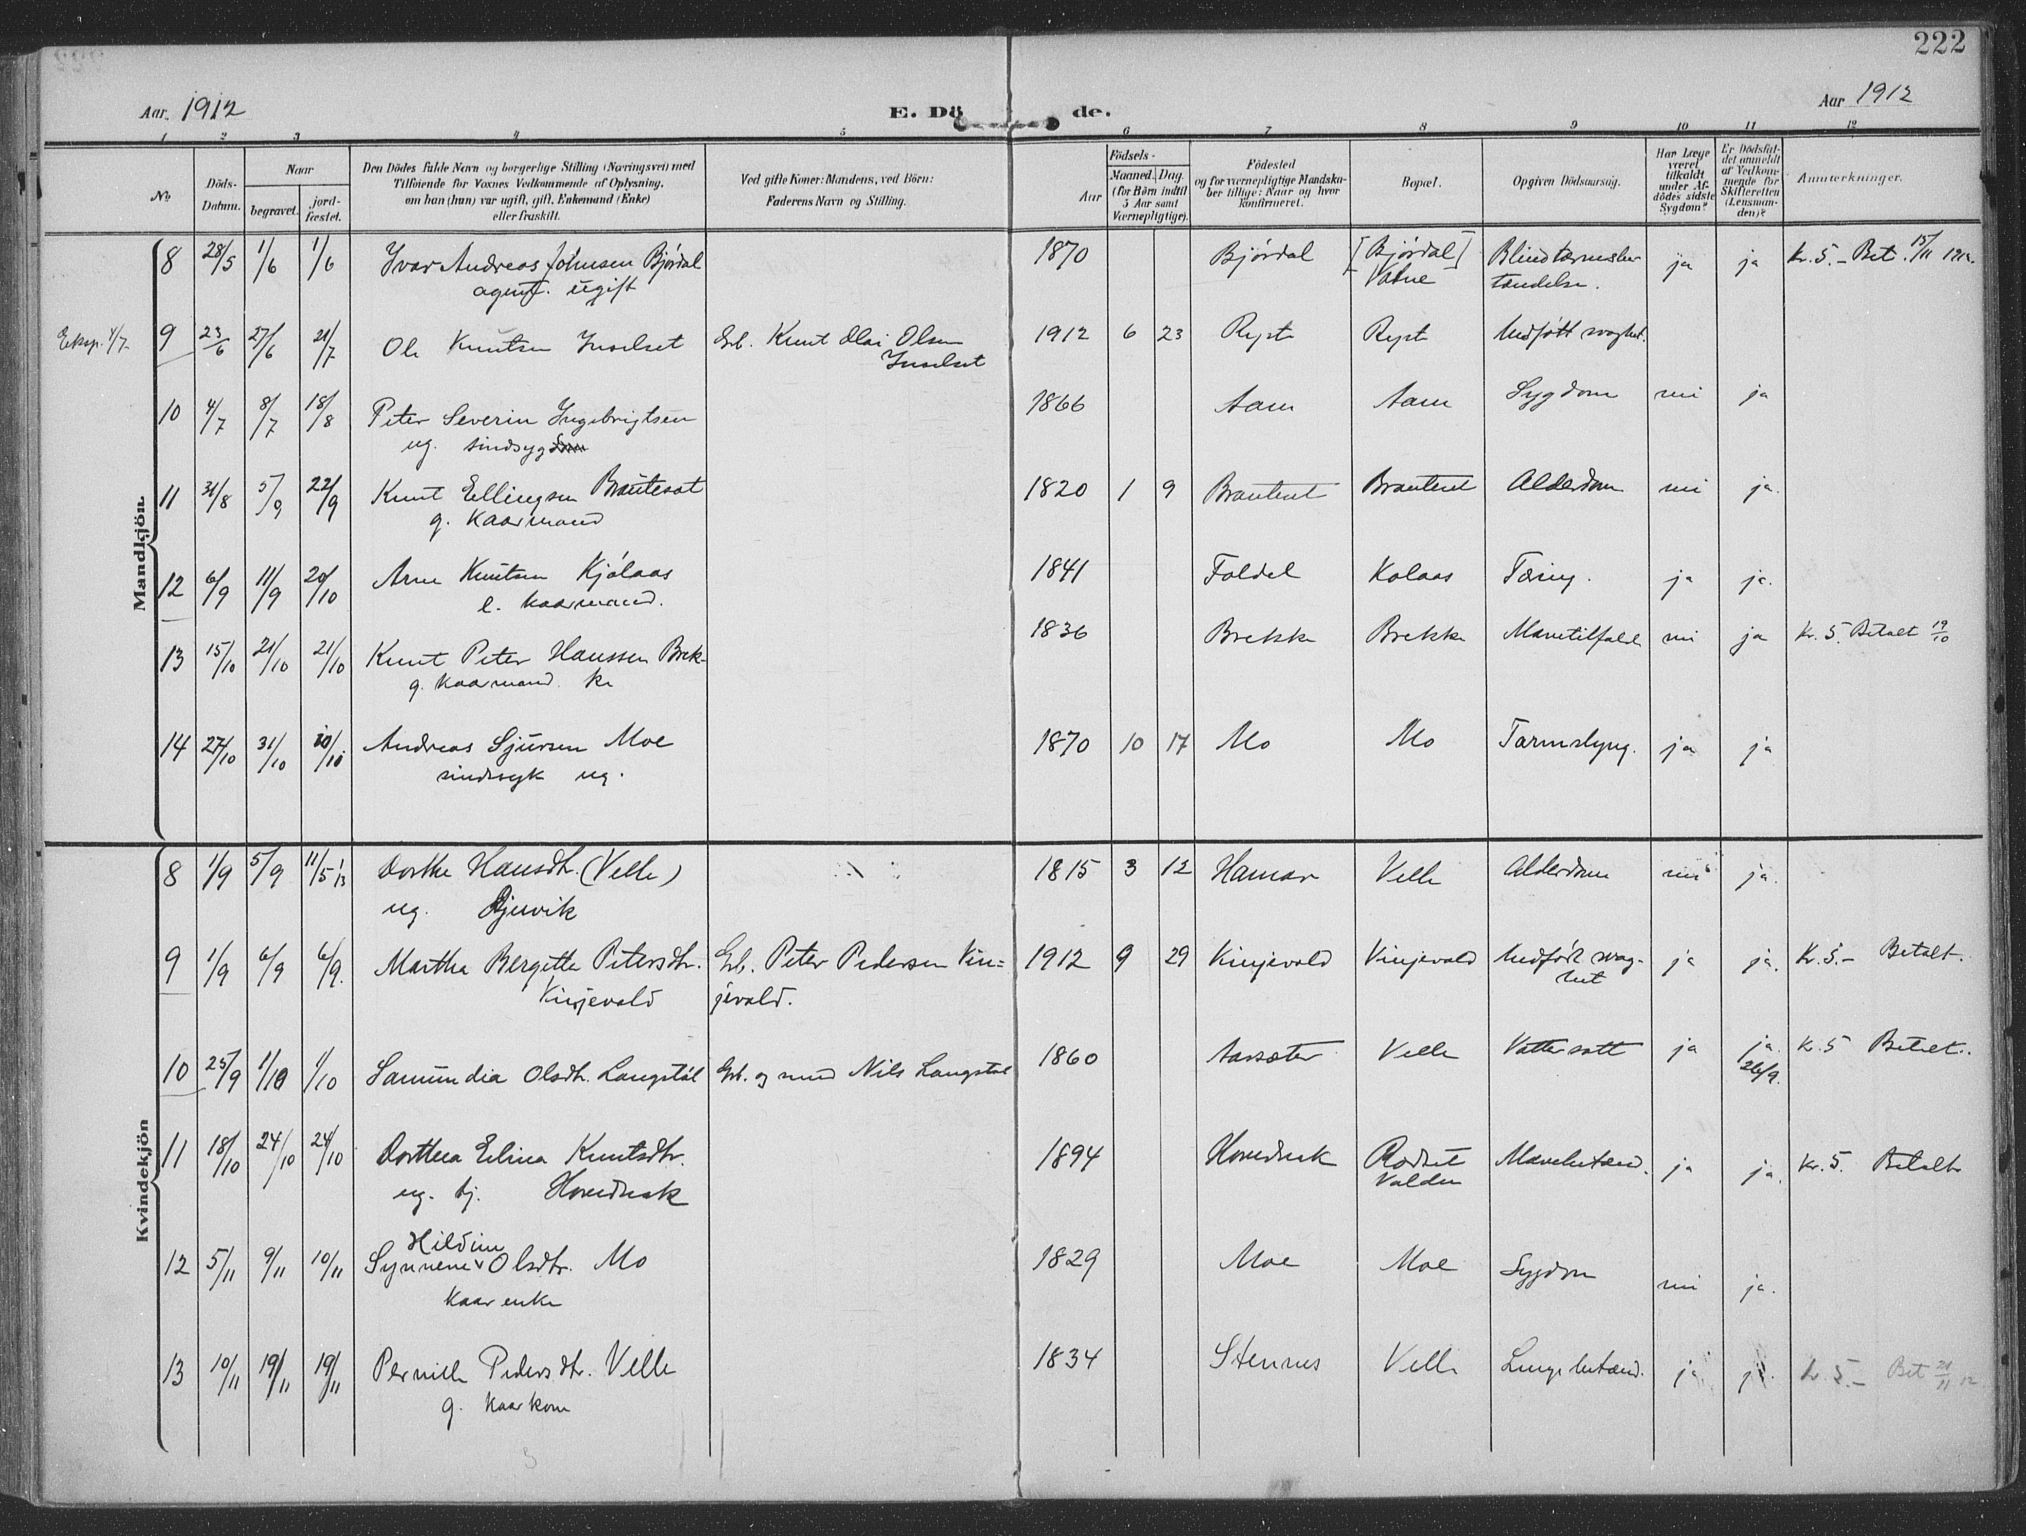 222
Aar. 1912
E. Dö de.
Aar 1912
1 2 3 4 5 6 7 8 9 10 11 12
No.
Döds-Datum.
Naar
begravet.
jord-fæstet.
Den Dödes fulde Navn og borgerlige Stilling (Næringsvei) med
Tilføiende for Voxnes Vedkommende af Oplysning,
om han (hun) var ugift, gift, Enkemand (Enke)
eller fraskilt.
Ved gifte Koner: Mandens, ved Börn:
Faderens Navn og Stilling.
Födsels-
Aar
Maaned. Dag.
(for Börn indtil
5 Aar samt
Værnepligtige).
Födested
og for værnepligtige Mandska-
ber tillige: Naar og hvor
konfirmeret.
Bopæl.
Opgiven Dödsaarsag.
Har Læge
været
tilkaldt
under Af-
dödes sidste
Sygdom?
Er Dödsfal-
det anmeldt
af Vedkom-
mende for
Skifteretten
(Lensman-
den)?
Anmerkninger.
Mandkjön
8 28/5 1/6 1/6 Ivar Andreas Johnsen Bjørdal 1870 Bjørdal [Bjørdal] ja ja Kr. 5.- Bet. 15/11 1912.
agent. ugift Vatne
Eksp. 4/7. 9 23/6 27/6 21/7 Ole Knutsen Inselset Gb. Knut Olai Olsen 1912 6 23 Ryste Ryste Medfött svaghet.
Inselset
10 4/7 8/7 18/8 Peter Severin Ingebrigtsen 1866 Aam Aam Sygdom nei ja
ug. sindsyg
11 31/8 5/9 22/9 Knut Ellingsen Brautesæt 1820 1 9 Brauteset Brauteset Alderdom nei ja.
g. Kaarmand
12 6/9 11/9 20/10 Arne Knutsen Kjölaas 1841 Foldal Kolaas Tæring. ja ja.
e. Kaarmand.
13 15/10 21/10 21/10 Knut Peter Hanssen Brek- 1836 Brekke Brekke Mavetilfælde nei ja Kr. 5. Betalt 19/10
g. Kaarmand. ke
14 27/10 31/10 Andreas Sjursen Moe 1870 10 17 Mo Mo Tarmslyng. ja ja
sindssyk ug.
Kvindekjön
8 1/9 5/9 11/5 13 Dorthe Hansdtr. (Velle) 1815 3 12 Hamar Velle Alderdom nei ja.
ug. Djuvik
9 1/9 6/9 6/9. Martha Bergitte Petersdtr. Gb. Peter Pedersen Vin= 1912 9 29 Vinjevold Vinjevold Medfödt svag- ja ja. Kr. 5.- Betalt.
Vinjevold jevold. het
10 25/9 1/10 1/10 Samundia Olsdtr. Langstøl Gb. og mand Nils Langstøl 1860 Aarsæter Velle Vattersott ja ja. Kr. 5 Betalt.
26/9.
11 18/10 24/10 24/10 Dorthea Elina Knutsdtr. 1894 Hovdenak Rødset Mavebetænd. ja ja. Kr. 5. Betalt
ug. tj. Hovdenak Volden
Hildine
12 5/11 9/11 10/11 Synneve Olsdtr. Mo 1829 Moe Moe Sygdom nei ja.
Kaarenke
13 10/11 19/11 19/11 Pernille Pedersdtr. Velle 1834 Stennes Velle Lungebetænd. ja ja. Kr. 5.- Bet 21/11 12
g. Kaarkone